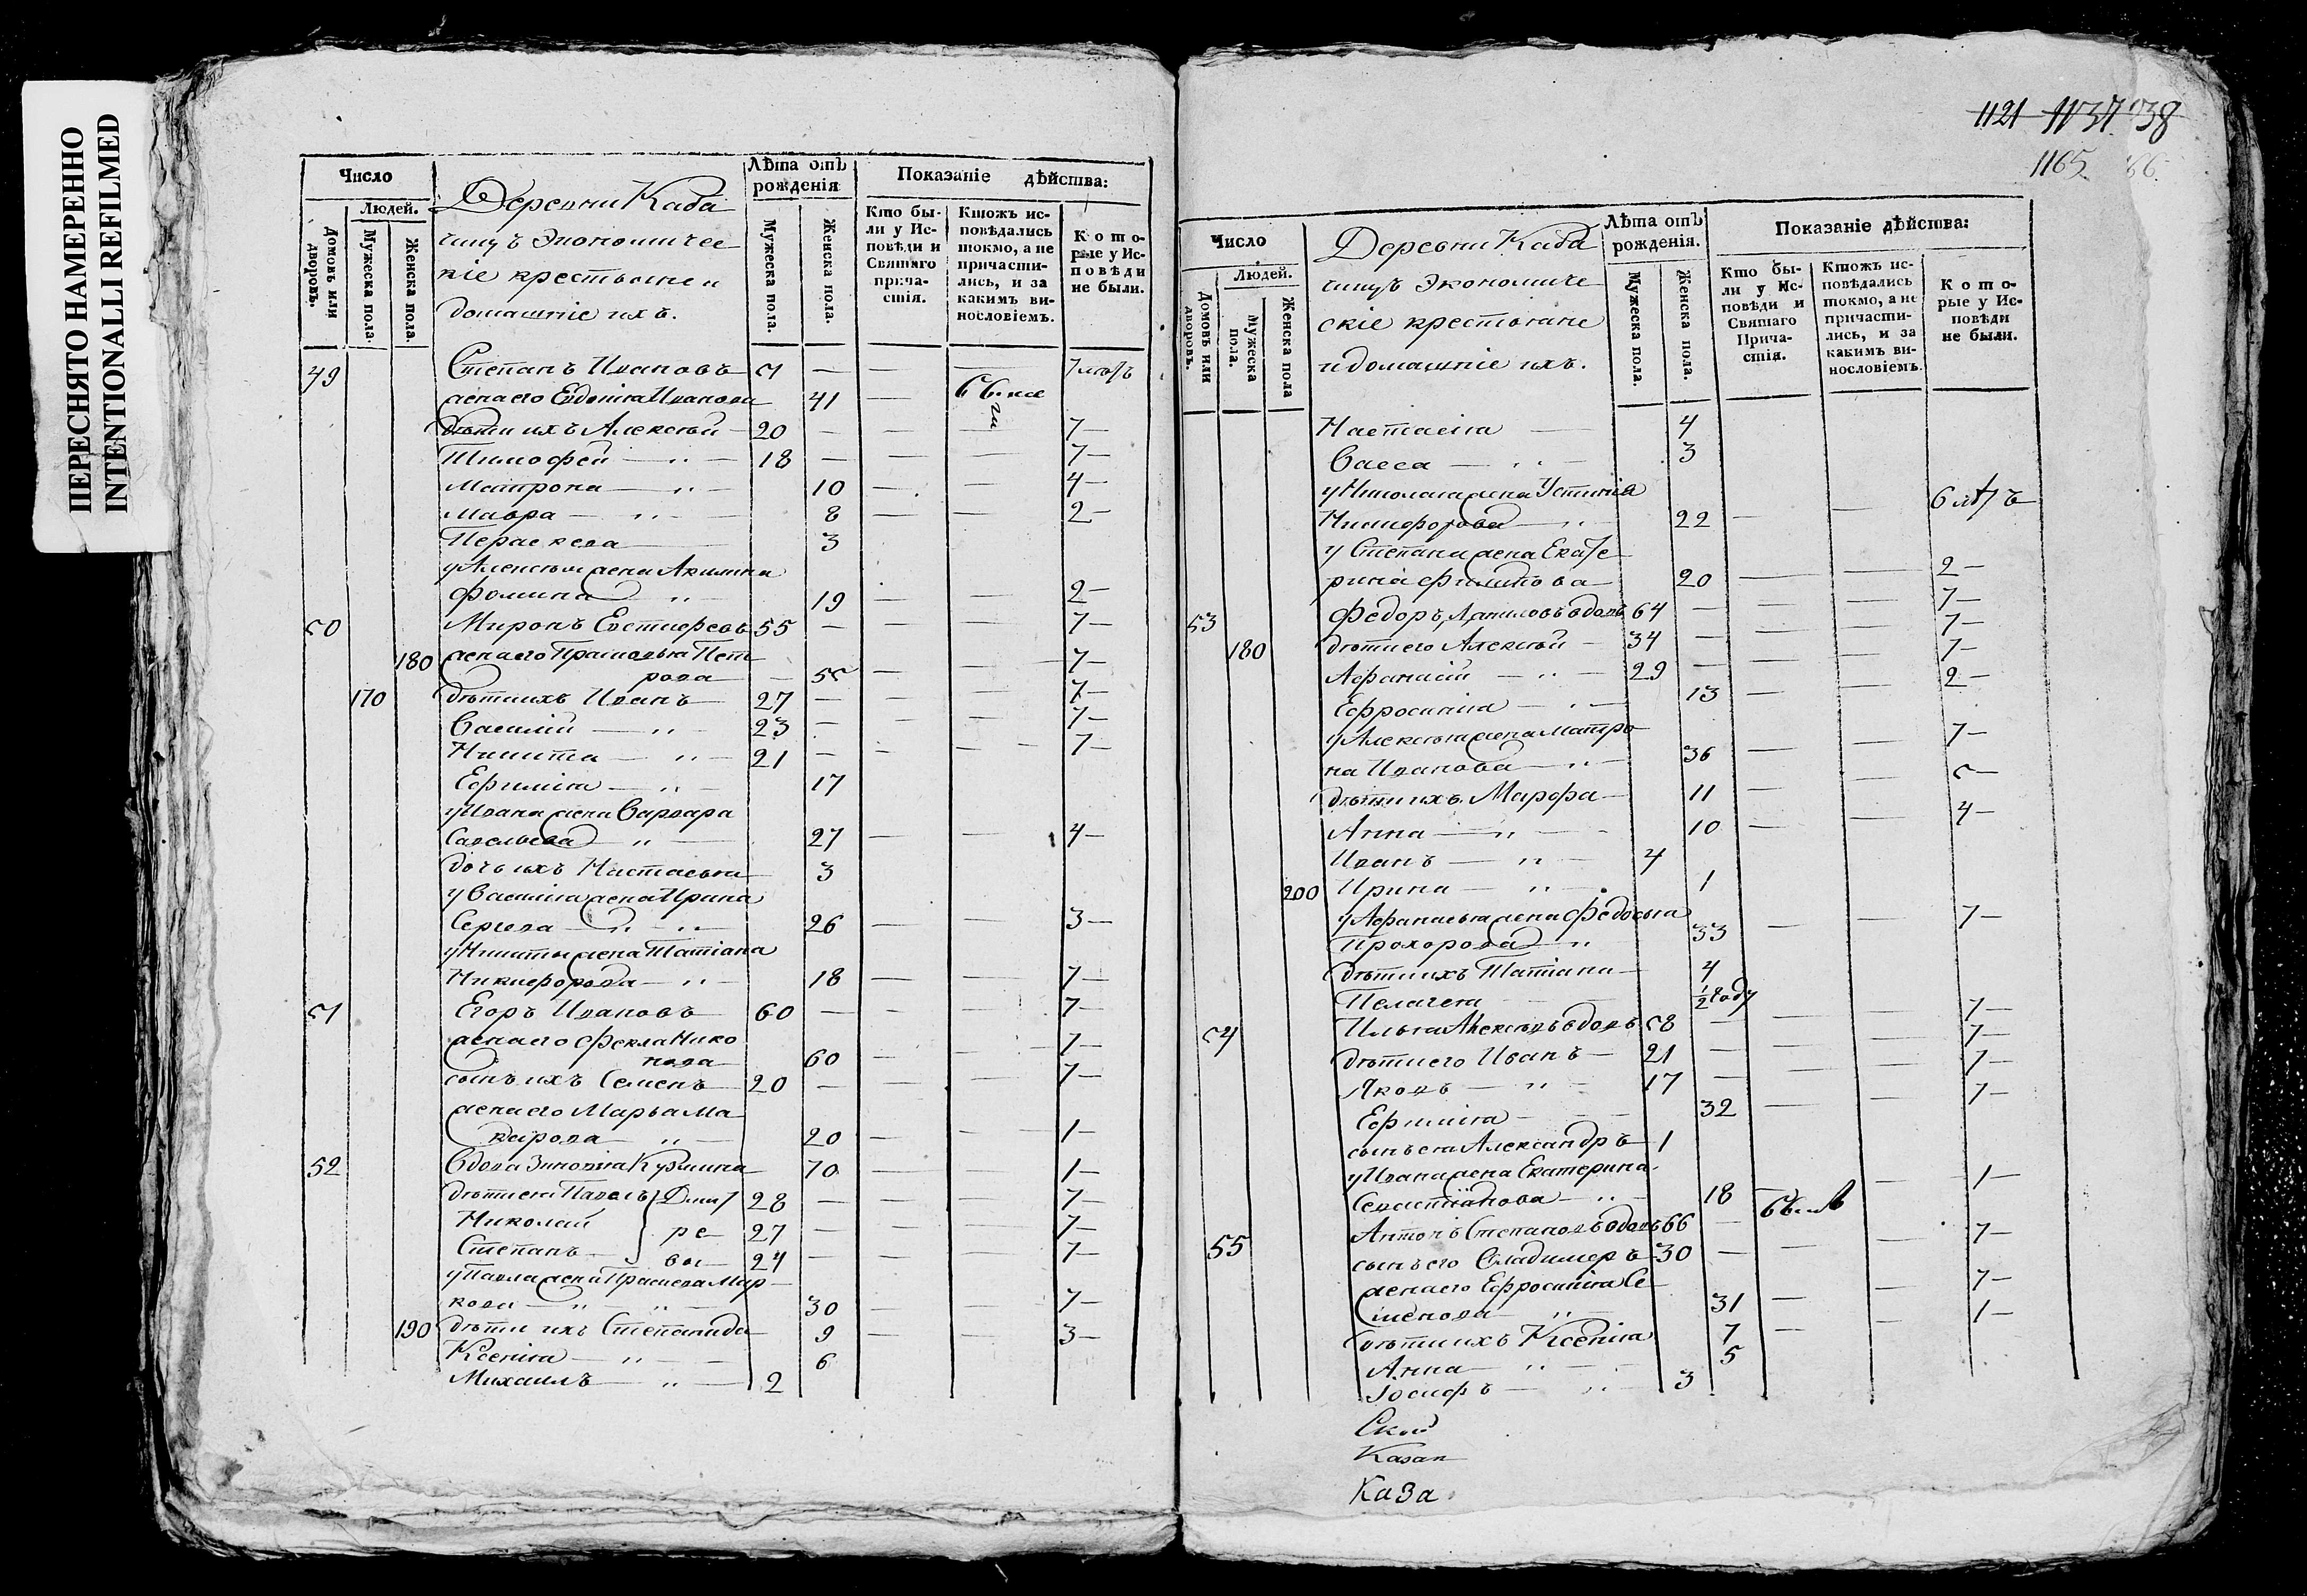 ПЕРЕСНЯТО НАМЕРЕННО
INTENTIONALLI REFILMED
Число
Людей.
Домовъ или дворовъ.
Мужеска пола.
Женска пола.
Деревни Каба
чищъ Экономичес
кіе крестьяне и
домашніе ихъ.
Лѣта отъ рожденія
Мужеска пола.
Женска пола.
Показаніе дѣйства:
Кто бы-
ли у Ис-
повѣди и
Святаго
прича-
стія.
Ктожъ ис-
повѣдались
токмо, а не
причасти-
лись, и за
какимъ ви-
нословіемъ.
Кото-
рые у Ис-
повѣди
не были.
49 Степанъ Ивановъ — —
жена его Евдокія Иванова 41 —
дѣти ихъ Алексѣй 20 — — — 7 —
Тимофей — 18 — — — 7 —
Матрона — 10 — — 4 —
Мавра — 8 — — 2 —
Параскева 3
у Алексѣя жена Акилина
Фомина 19 — — 2 —
50 Миронъ Евстифеевъ 55 — — — 7 —
180 жена его Прасковья Пет
рова — 55 — — 7 —
170 дѣти ихъ Иванъ 27 — 7 —
Василій — 23 — — — 7 —
Никита — 21 — — — 7 —
Ефимія — 17
у Ивана жена Варвара
Савельева 27 — — 4 —
дочь ихъ Настасья 3
у Василія жена Ирина
Сергева 26 — — 3 —
у Никиты жена Татіана
Никифорова 18 — — 7 —
51 Егоръ Ивановъ 60 — — — 7 —
жена его Фекла Нико
нова 60 — — 7 —
сынъ ихъ Семенъ 20 — — — 7 —
жена его Марья Ма
карова 20 — — 1 —
52 Вдова Зиновія Кузмина 70 — — 1 —
дѣти ея Павелъ } Дмит 28 — — — 7 —
Николай } ре 27 — — — 7 —
Степанъ } вы 24 — — — 7 —
у Павла жена Прасковья Мар
кова 30 — — 7 —
190 дѣти ихъ Степанида 9 — — 3 —
Ксенія — 6
Михаилъ — 2
1121 1137 38
1165 66
Число
Людей.
Домовъ или дворовъ.
Мужеска пола.
Женска пола
Деревни Каба
чищъ Экономиче
скіе крестьяне
и домашніе ихъ.
Лѣта отъ рожденія.
Мужеска пола.
Женска пола.
Показаніе дѣйства:
Кто бы-
ли у Ис-
повѣди и
Святаго
Прича-
стія.
Ктожъ ис-
повѣдались
токмо, а не
причасти-
лись, и за
какимъ ви-
нословіемъ.
Кото-
рые у Ис-
повѣди
не были.
Настасія — 4
Васса — 3
у Николая жена Устинія
Никифорова 22 — — 6 лѣтъ
у Степана жена Екате
рина Филипова 20 — — 2 —
53 Федоръ Даниловъ вдовъ 64 — — — 7 —
180 дѣти его Алексѣй 34 — 7 —
Афанасій — 29 — — — 7 —
Ефросинія — 13 — — 2 —
у Алексѣя жена Матро
на Иванова 36 — — 7 —
дѣти ихъ Марфа 11 — — 5 —
Анна — 10 — — 4 —
Иванъ — 4
200 Ирина — 1
у Афанасья жена Федосья
Прохорова 33 — — 7 —
дѣти ихъ Татіана 4
Пелагея 1/2 году
54 Илья Алексѣевъ вдовъ 58 — — — 7 —
дѣти его Иванъ 21 — — — 7 —
Яковъ — 17 — — — 7 —
Ефимія — 32 — — 7 —
сынъ ея Александръ 1
у Ивана жена Екатерина
Севастіанова 18 — — 1 —
55 Антонъ Степановъ вдовъ 66 —
сынъ его Владимеръ 30 — — — 7 —
жена его Ефросинія Се
менова 31 — — 7 —
дѣти ихъ Ксенія 7 — — 1 —
Анна — 5
Іосифъ — 3
Казан
Каза